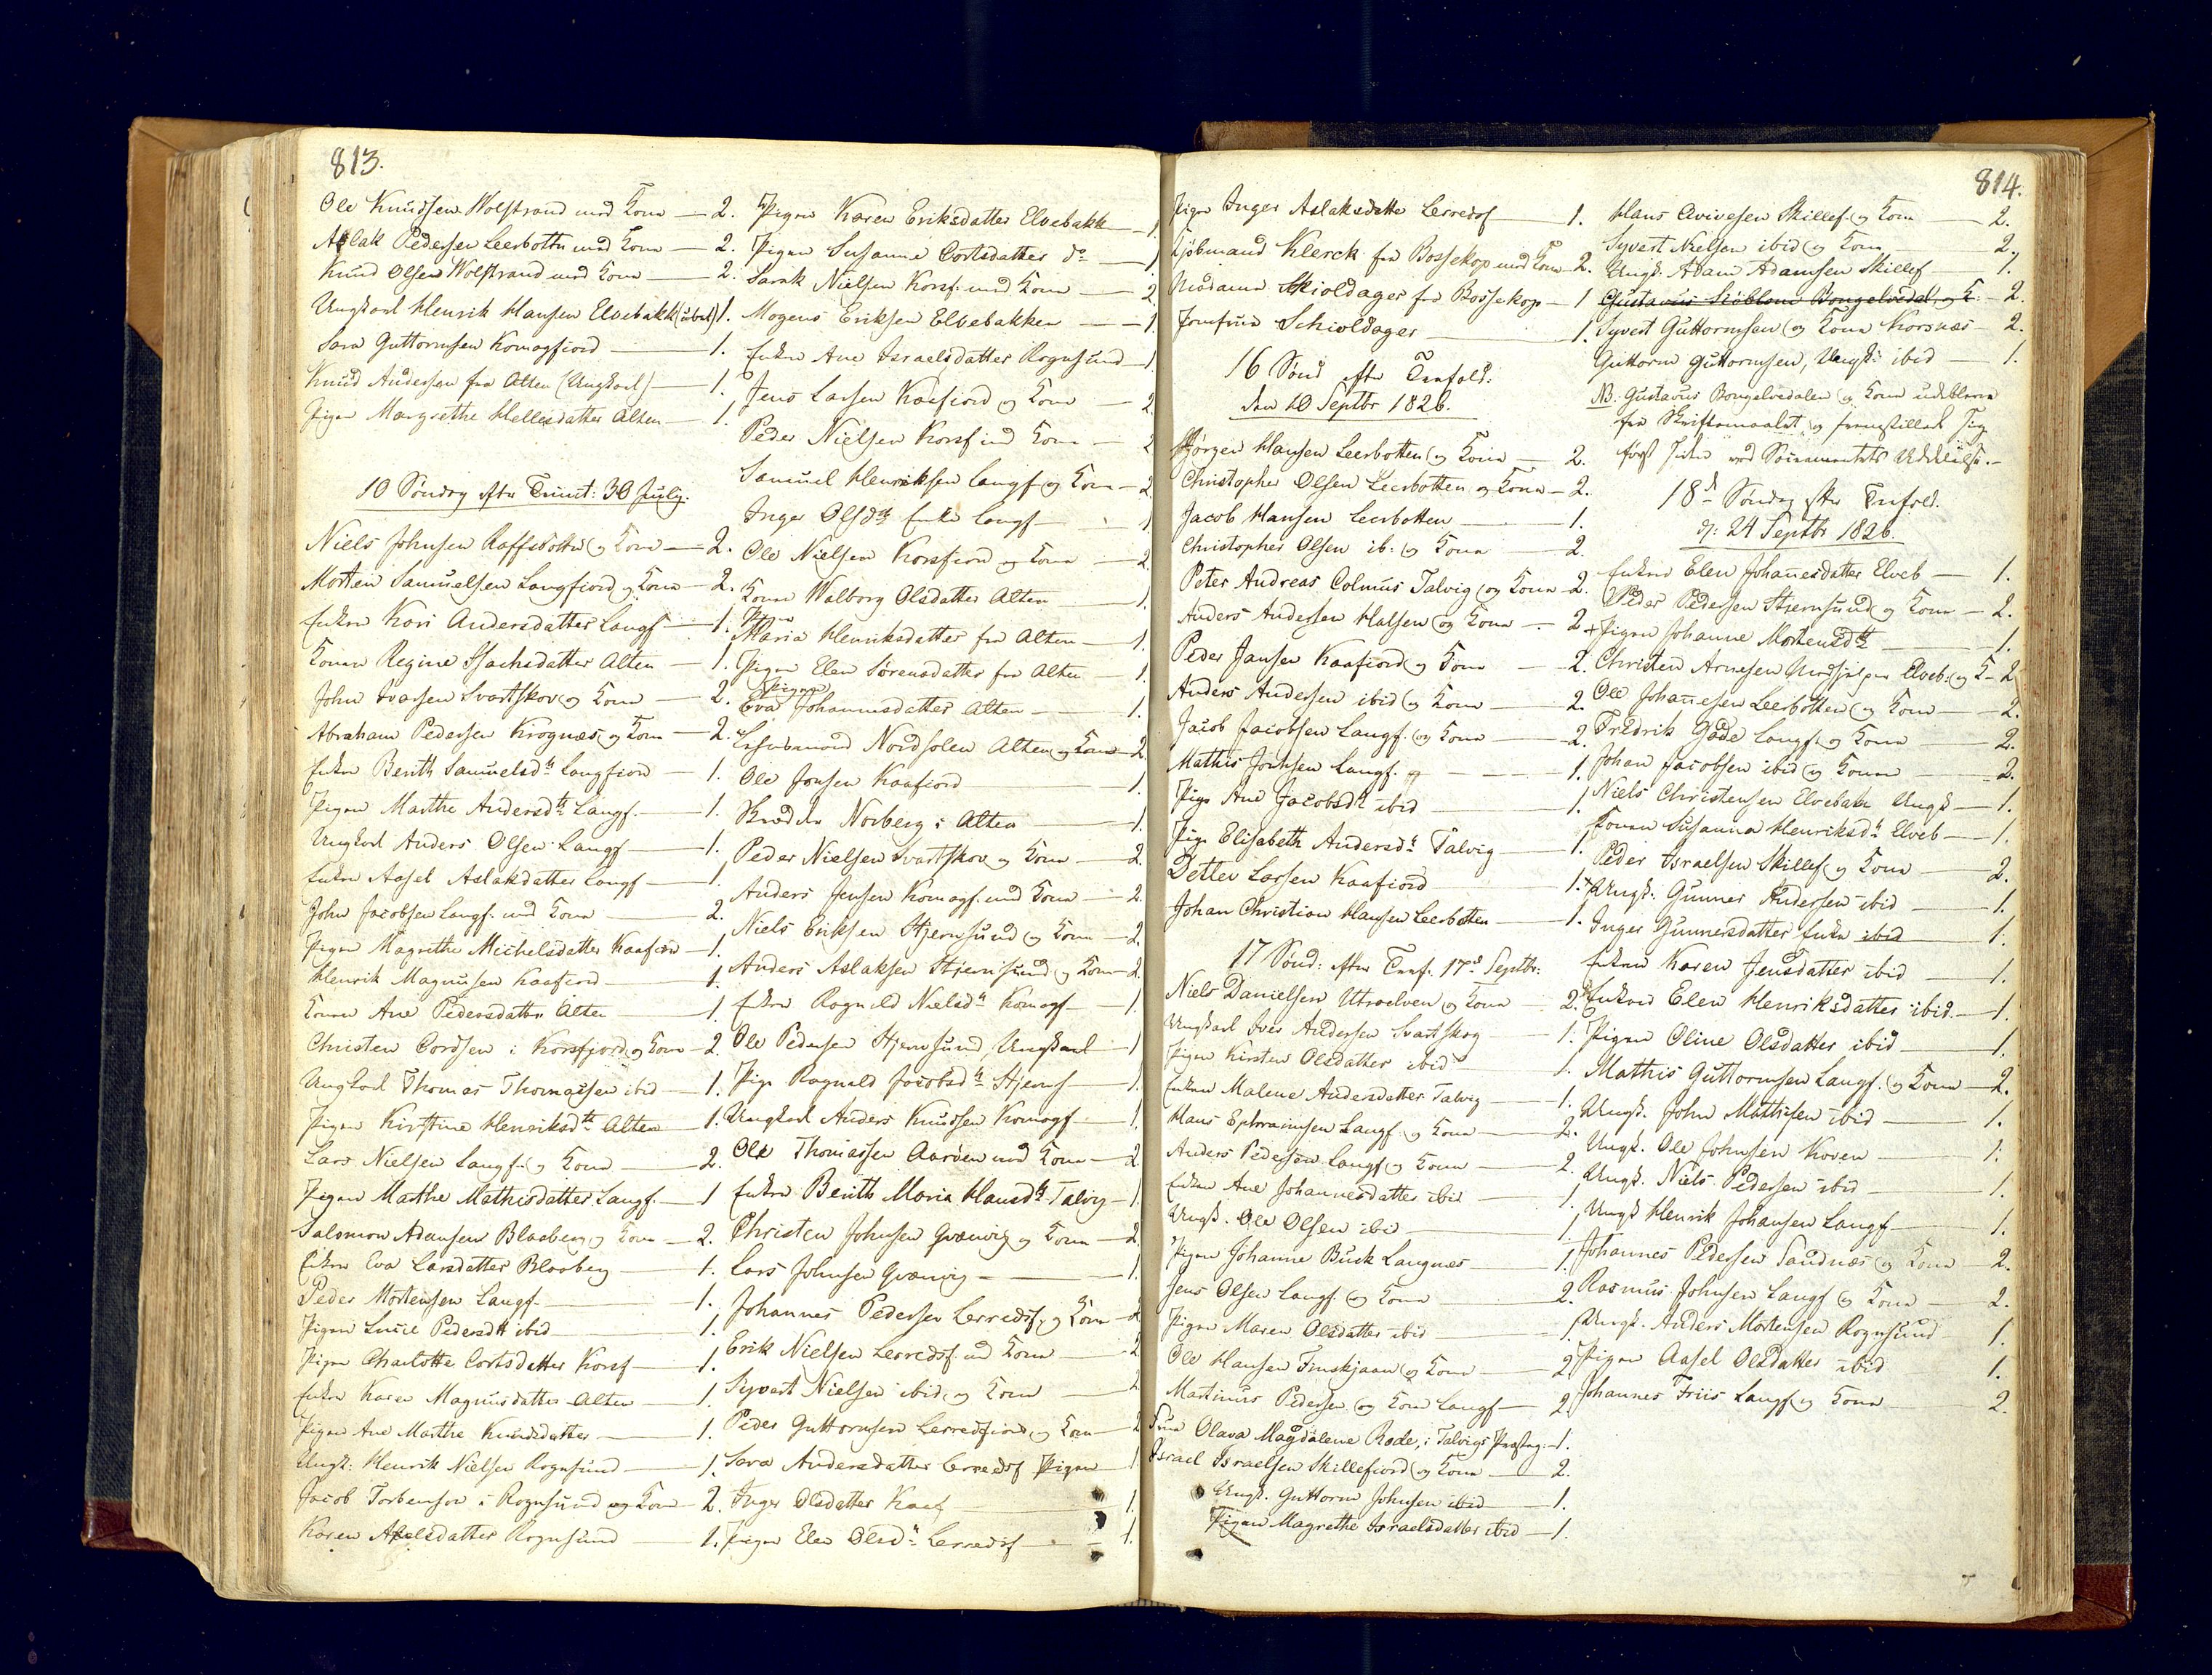 813.
Ole Knudsen Wolstrand med Kone — 2.
Aslak Pedersen Leerbotten med Kone — 2.
Knud Olsen Wolstrand med Kone — 2.
Ungkarl Henrik Hansen Elvebakk 1.
Sara Guttormsen Komagfiord — 1.
Knud Andersen fra Alten (Ungkarl) — 1.
Pigen Margrethe Hellesdatter Alten — 1.
10 Søndag efter Trinit: 30 July.
Niels Johnsen Raffsbotten og Kone — 2.
Morten Samuelsen Langfiord og Kone — 2.
Enken Kari Andersdatter Langf — 1.
Konen Regine Isachsdatter Alten — 1.
John Ivarsen Svartskov og Kone — 2.
Abraham Pedersen Krognæs og Kone — 2.
Enken Berith Samuelsdtr Langfiord — 1.
Pigen Marthe Andersdtr Langf. — 1.
Ungkarl Anders Olsen Langf — 1.
Enken Aasel Aslakdatter Langf — 1.
John Jacobsen Langf. med Kone — 2.
Pigen Magrethe Michelsdatter Kaafiord — 1.
Henrik Magnusen Kaafiord — 1.
Konen Ane Pedersdatter Alten — 1.
Christen Cordsen i Korsfjord og Kone — 2.
Ungkarl Thomas Thomassen ibid — 1.
Pigen Kirstine Henriksdtr Alten — 1.
Lars Nielsen Langf. og Kone — 2.
Pigen Marthe Mathisdatter Langf. — 1
Salomon Adamsen Blaaberg og Kone — 2.
Enken Eva Larsdatter Blaaberg — 1.
Peder Mortensen Langf. — 1.
Pigen Lucie Pedersdtr ibid — 1.
Pigen Charlotte Cortsdatter Korsf — 1.
Enken Karen Magnusdatter Alten — 1.
Pigen Ane Marthe Knudsdatter — 1.
Ungk: Henrik Nielsen Rognsund — 1.
Jacob Torbensen i Rognsund og Kone — 2.
Karen Axelsdatter Rognsund — 1.
Pigen Karen Eriksdatter Elvebakk — 1
Pigen Susanne Cortsdatter do — 1
Sarak Nielsen Korsf. med Kone — 2
Mogens Eriksen Elvebakken — 1.
Enken Ane Israelsdatter Rognsund — 1
Jens Larsen Kaafiord og Kone — 2.
Peder Nielsen Korsf med Kone — 2
Samuel Henriksen Langf og Kone — 2
Inger Olsdtr Enke Langf — 1
Ole Nielsen Korsfiord og Kone — 2
Konen Walborg Olsdatter Alten — 1.
Maria Henriksdatter fra Alten — 1.
Pigen Elen Sørensdatter fra Alten — 1
Pigen
Eva Johannesdatter Alten — 1.
Nordsolen Alten og Kone — 2
Ole Jonsen Kaafiord — 1.
Norberg i Alten — 1.
Peder Nielsen Svartskov og Kone — 2.
Anders Jensen Komagf. med Kone — 2.
Niels Eriksen Stjernsund og Kone — 2.
Anders Aslaksen Stjernsund og Kone — 2
Enken Ragnild Nielsdtr Komagf — 1.
Ole Pedersen Stjernsund, Ungkarl — 1
Pige Ragnild Jacobsdtr Stjerns — 1.
Ungkarl Anders Knudsen Komagf — 1.
Ole Thomassen Aaröen med Kone — 2
Enken Berith Maria Hansdtr Talvig — 1.
Christen Johnsen Qvænvig og Kone — 2
Lars Johnsen Qvænvig — 1.
Johannes Pedersen Lerredsf. og Kone — 2
Erik Nielsen Lerredsf. med Kone — 2
Syvert Nielsen ibid. og Kone — 2
Peder Guttormsen Lerredsfiord og Kone — 2
Sara Andersdatter Lerredsf Pigen — 1
Inger Olsdatter Kaaf — 1.
Pigen Elen Olsdtr Lerredsf — 1.
814.
Pigen Inger Aslaksdatter Lerredsf — 1.
Kjöbmand Klerck fra Bossekop med Kone — 2.
Madame Skioldager fra Bossekop — 1
Jomfrue Schioldager — 1.
16 Sönd efter Trefold:
den 10 Septbr 1826.
Jörgen Hansen Leerbotten og Kone — 2.
Christopher Olsen Leerbotten og Kone — 2.
Jacob Hansen Leerbotten — 1.
Christopher Olsen ib: og Kone — 2.
Peter Andreas Colmus Talvig og Kone — 2.
Anders Andersen Halsen og Kone — 2.
Peder Jansen Kaafiord og Kone — 2.
Anders Andersen ibid og Kone — 2.
Jacob Jacobsen Langf. og Kone — 2.
Mathis Jochsen Langf. — 1.
Pige Ane Jacobsdtr ibid — 1.
Pige Elisabeth Andersdtr Talvig — 1.
Detlev Larsen Kaafiord — 1.
Johan Christian Hansen Leerbotten — 1.
17 Sönd: efter Tref. 17d Septbr:
Niels Danielsen Utvælven og Kone — 2.
Ungkarl Iver Andersen Svartskog — 1.
Pigen Kirsten Olsdatter ibid — 1.
Enken Malene Andersdatter Talvig — 1.
Hans Ephraimsen Langf. og Kone — 2.
Anders Pedersen Langf. og Kone — 2.
Enken Ane Johannesdatter ibid — 1.
Ungk. Ole Olsen ibid — 1.
Pigen Johanne Buck Langnæs — 1.
Jens Olsen Langf. og Kone — 2.
Pigen Maren Olsdatter ibid — 1.
Ole Hansen Finskjaan og Kone — 2
Martinus Pedersen og Kone Langf — 2
Frue Olava Magdalene Rode, i Talvigs Præsteg: — 1.
Israel Israelsen Skillefiord og Kone — 2.
Ungk. Guttorm Johnsen ibid — 1.
Pigen Magrethe Israelsdatter ibid — 1.
Hans Avivesen Skillef. og Kone — 2.
Syvert Nielsen ibid og Kone — 2.
Ungk. Adam Adamsen Skillef — 1.
Gustavus Siöblom Bongelvedal. og K. — 2.
Syvert Guttormsen og Kone Korsnæs — 2.
Guttorm Guttormsen, Ungk: ibid — 1.
NB. Gustavus Bongelvedalen og Kone udebleve
fra Skriftemaalet og fremstillede sig
først siden ved Sacramentets Uddelelse.
18de Søndag efter Trefold.
d: 24 Septbr 1826.
Enken Elen Johannesdatter Elveb — 1.
Peder Pedersen Stjernsund og Kone — 2.
+ Pigen Johanne Mortensdtr — 1.
Christen Arnesen Elveb: og K — 2
Ole Johannesen Leerbotten og Kone — 2.
Fredrik Gade Langf. og Kone — 2.
Johan Jacobsen ibid og Kone — 2.
Niels Christensen Elvebakk Ungk — 1.
Konen Susanna Henriksdtr Elveb — 1.
Peder Israelsen Skillef. og Kone — 2.
Ungk. Gunner Andersen ibid — 1.
Inger Gunnersdatter Enke ibid — 1.
Enken Karen Jensdatter ibid — 1.
Enken Elen Henriksdatter ibid. — 1.
Pigen Oline Olsdatter ibid — 1.
Mathis Guttormsen Langf. og Kone — 2.
Ungk. John Mathisen ibid — 1.
Ungk. Ole Johnsen Koven — 1.
Ungk. Niels Pedersen ibid — 1.
Ungk Henrik Johansen Langf — 1.
Johannes Pedersen Sandnæs og Kone — 2.
Rasmus Johnsen Langf og Kone — 2.
Ungk. Anders Mortensen Rognsund — 1.
Pigen Aasel Olsdatter ibid — 1.
Johannes Friis Langf. og Kone — 2.